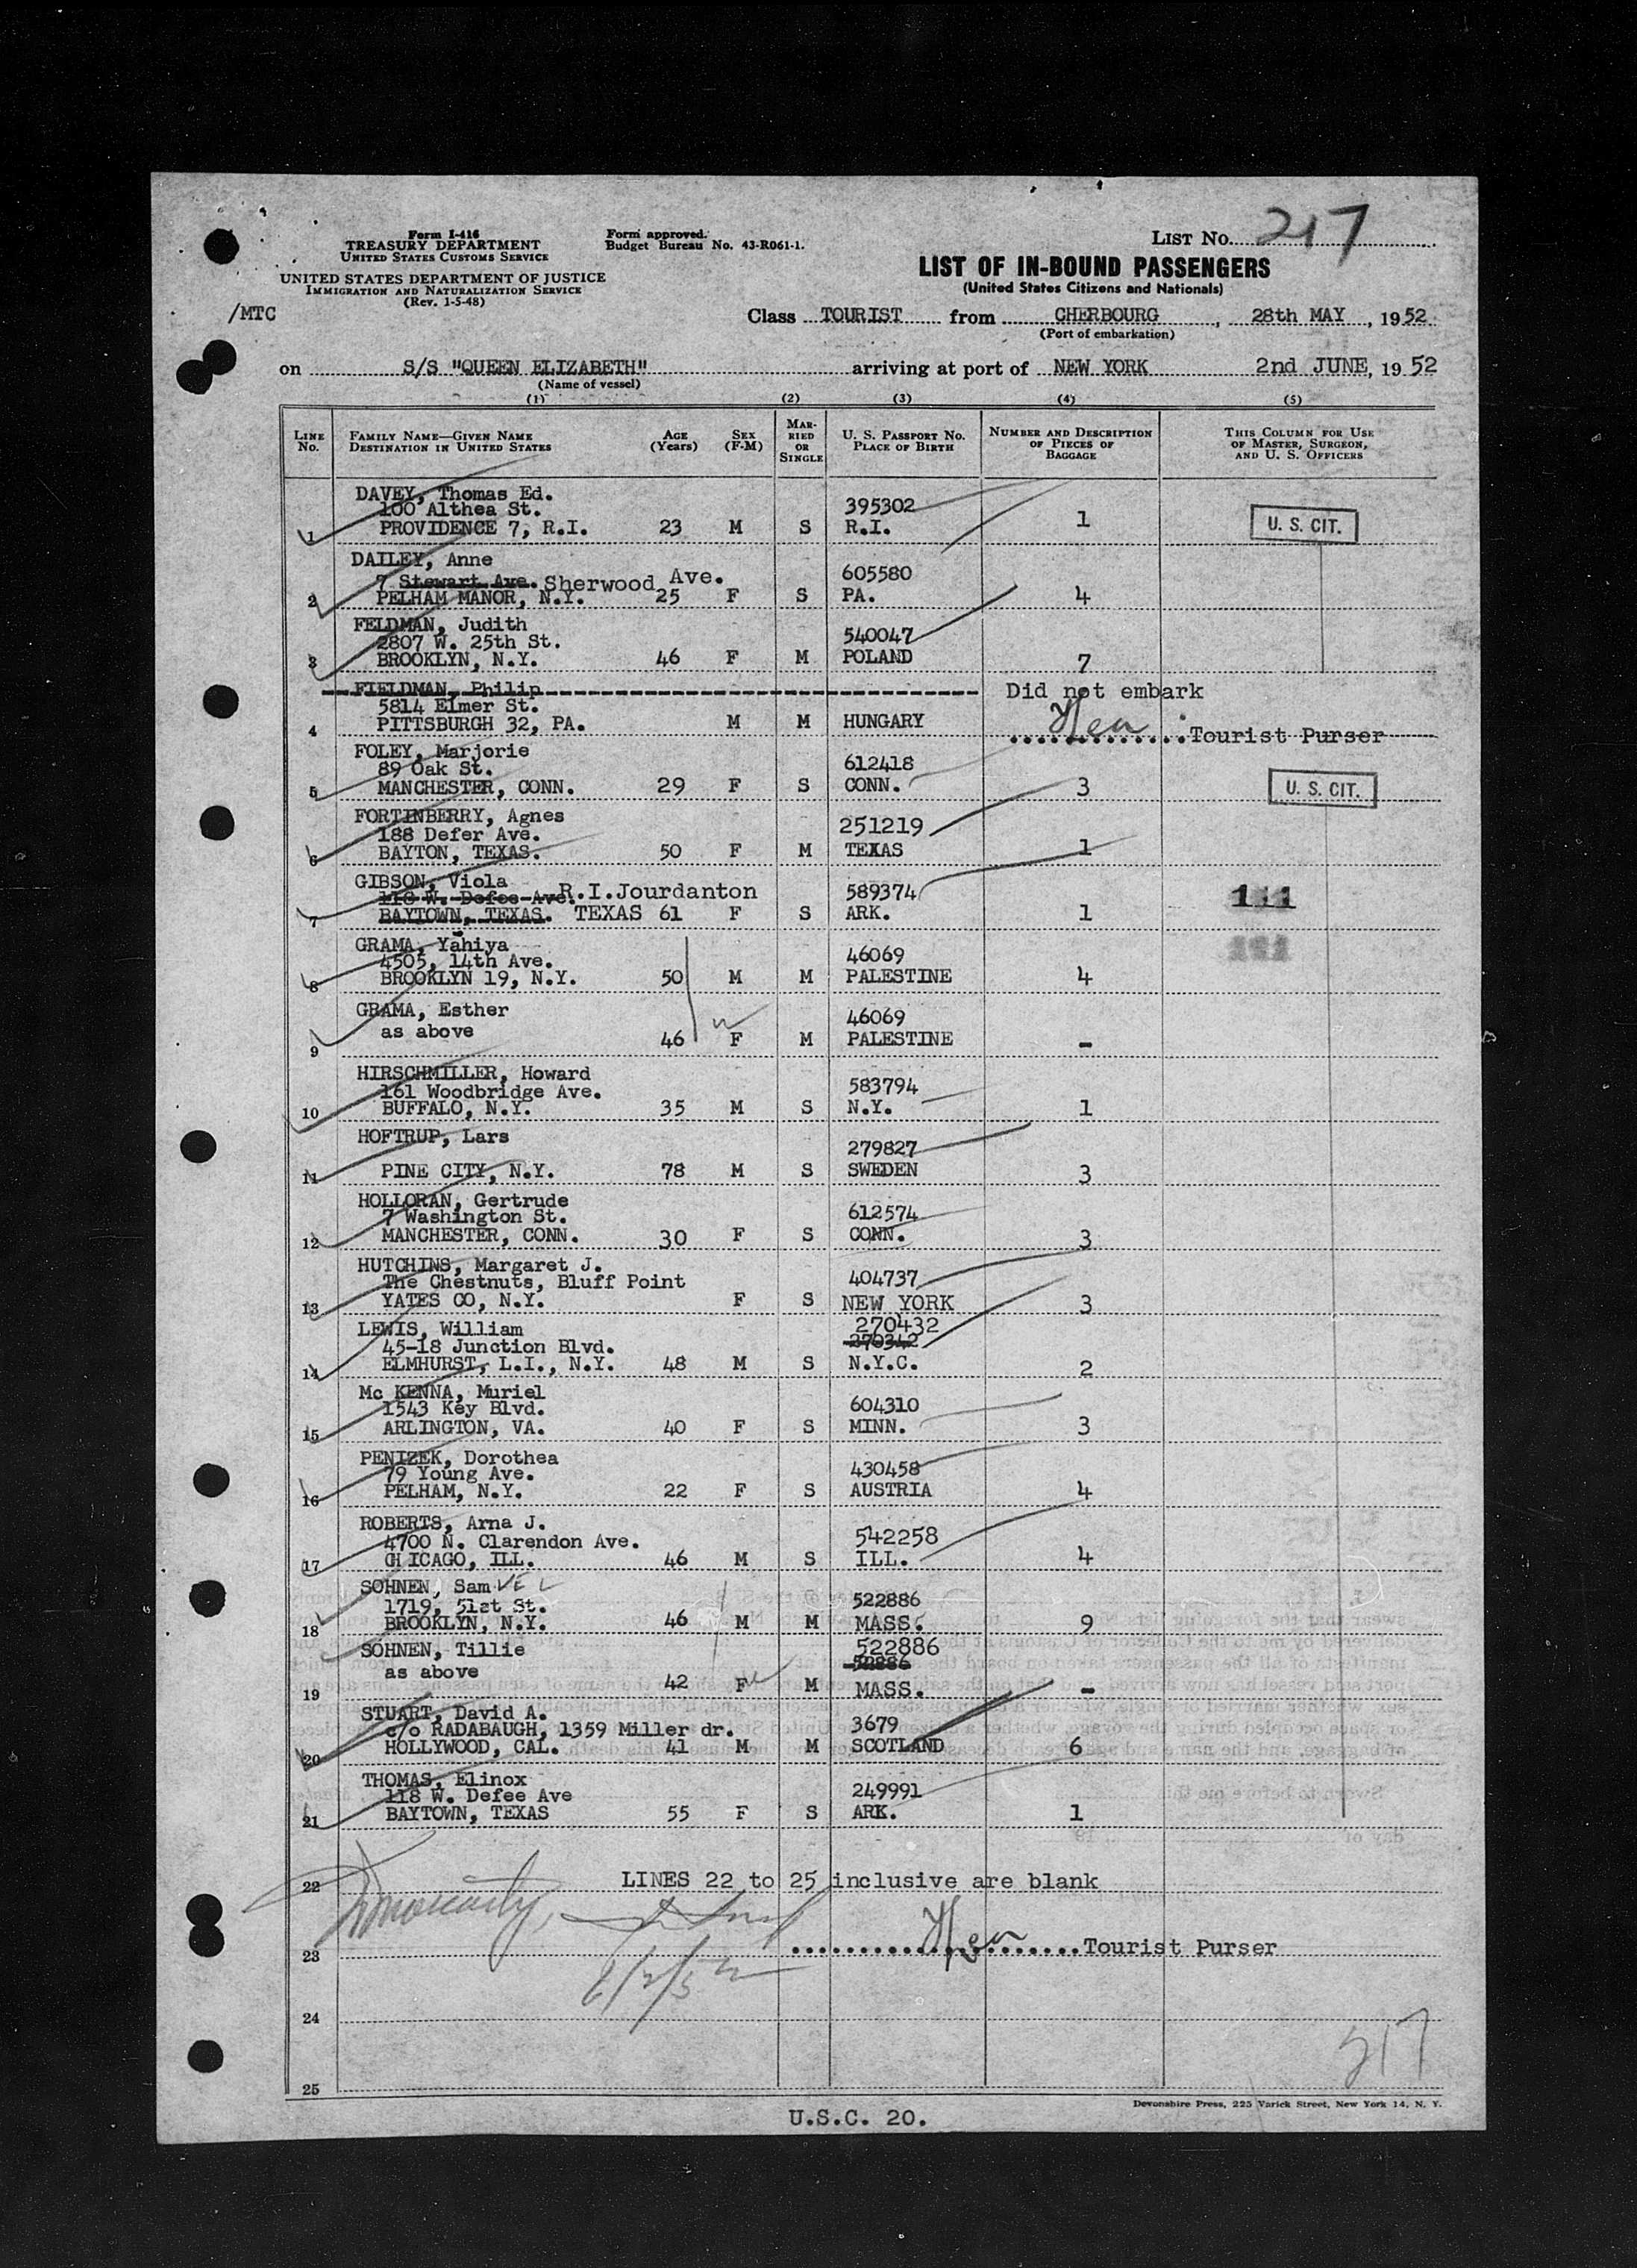 Form I-416
TREASURY DEPARTMENT
UNITED STATES CUSTOMS SERVICE
UNITED STATES DEPARTMENT OF JUSTICE
IMMIGRATION AND NATURALIZATION SERVICE
(Rev. 1-5-48)
Form approved.
Budget Bureau No. 43-R061-1.
LIST No. 217
LIST OF IN-BOUND PASSENGERS
(United States Citizens and Nationals)
/MTC
Class TOURIST from CHERBOURG, 28th MAY, 1952
(Port of embarkation)
on S/S "QUEEN ELIZABETH" arriving at port of NEW YORK 2nd JUNE, 1952
(Name of vessel)
(1) (2) (3) (4) (5)
LINE No. FAMILY NAME—GIVEN NAME DESTINATION IN UNITED STATES AGE (Years) SEX (F-M) MARRIED OR SINGLE U. S. PASSPORT No. PLACE OF BIRTH NUMBER AND DESCRIPTION OF PIECES OF BAGGAGE THIS COLUMN FOR USE OF MASTER, SURGEON, AND U. S. OFFICERS
DAVEY, Thomas Ed.
100 Althea St. 395302
1 PROVIDENCE 7, R.I. 23 M S R.I. 1 U. S. CIT.
DAILEY, Anne
7 Stewart Ave. Sherwood Ave. 605580
2 PELHAM MANOR, N.Y. 25 F S PA. 4
FELDMAN, Judith
2807 W. 25th St. 540047
3 BROOKLYN, N.Y. 46 F M POLAND 7
FIELDMAN, Philip Did not embark
5814 Elmer St.
4 PITTSBURGH 32, PA. M M HUNGARY Tourist Purser
FOLEY, Marjorie
89 Oak St. 612418
5 MANCHESTER, CONN. 29 F S CONN. 3 U. S. CIT.
FORTINBERRY, Agnes
188 Defer Ave. 251219
6 BAYTON, TEXAS. 50 F M TEXAS 1
GIBSON, Viola
118 W. Defee Ave. R.I. Jourdanton 589374
7 BAYTOWN, TEXAS. TEXAS 61 F S ARK. 1
GRAMA, Yahiya
4505, 14th Ave. 46069
8 BROOKLYN 19, N.Y. 50 M M PALESTINE 4
GRAMA, Esther 46069
as above
9 46 F M PALESTINE -
HIRSCHMILLER, Howard
161 Woodbridge Ave. 583794
10 BUFFALO, N.Y. 35 M S N.Y. 1
HOFTRUP, Lars
279827
11 PINE CITY, N.Y. 78 M S SWEDEN 3
HOLLORAN, Gertrude
7 Washington St. 612574
12 MANCHESTER, CONN. 30 F S CONN. 3
HUTCHINS, Margaret J.
The Chestnuts, Bluff Point 404737
13 YATES CO, N.Y. F S NEW YORK 3
LEWIS, William 270432
45-18 Junction Blvd. 270342
14 ELMHURST, L.I., N.Y. 48 M S N.Y.C. 2
Mc KENNA, Muriel
1543 Key Blvd. 604310
15 ARLINGTON, VA. 40 F S MINN. 3
PENIZEK, Dorothea
79 Young Ave. 430458
16 PELHAM, N.Y. 22 F S AUSTRIA 4
ROBERTS, Arna J.
4700 N. Clarendon Ave. 542258
17 CHICAGO, ILL. 46 M S ILL. 4
SOHNEN, Sam VEL
1719, 51st St. 522886
18 BROOKLYN, N.Y. 46 M M MASS. 9
SOHNEN, Tillie 522886
as above 52886
19 42 F M MASS. -
STUART, David A.
c/o RADABAUGH, 1359 Miller dr. 3679
20 HOLLYWOOD, CAL. 41 M M SCOTLAND 6
THOMAS, Elinox
118 W. Defee Ave 249991
21 BAYTOWN, TEXAS 55 F S ARK. 1
22 LINES 22 to 25 inclusive are blank
23 Tourist Purser
6/2/52
24
217
25
Devonshire Press, 225 Varick Street, New York 14, N. Y.
U.S.C. 20.